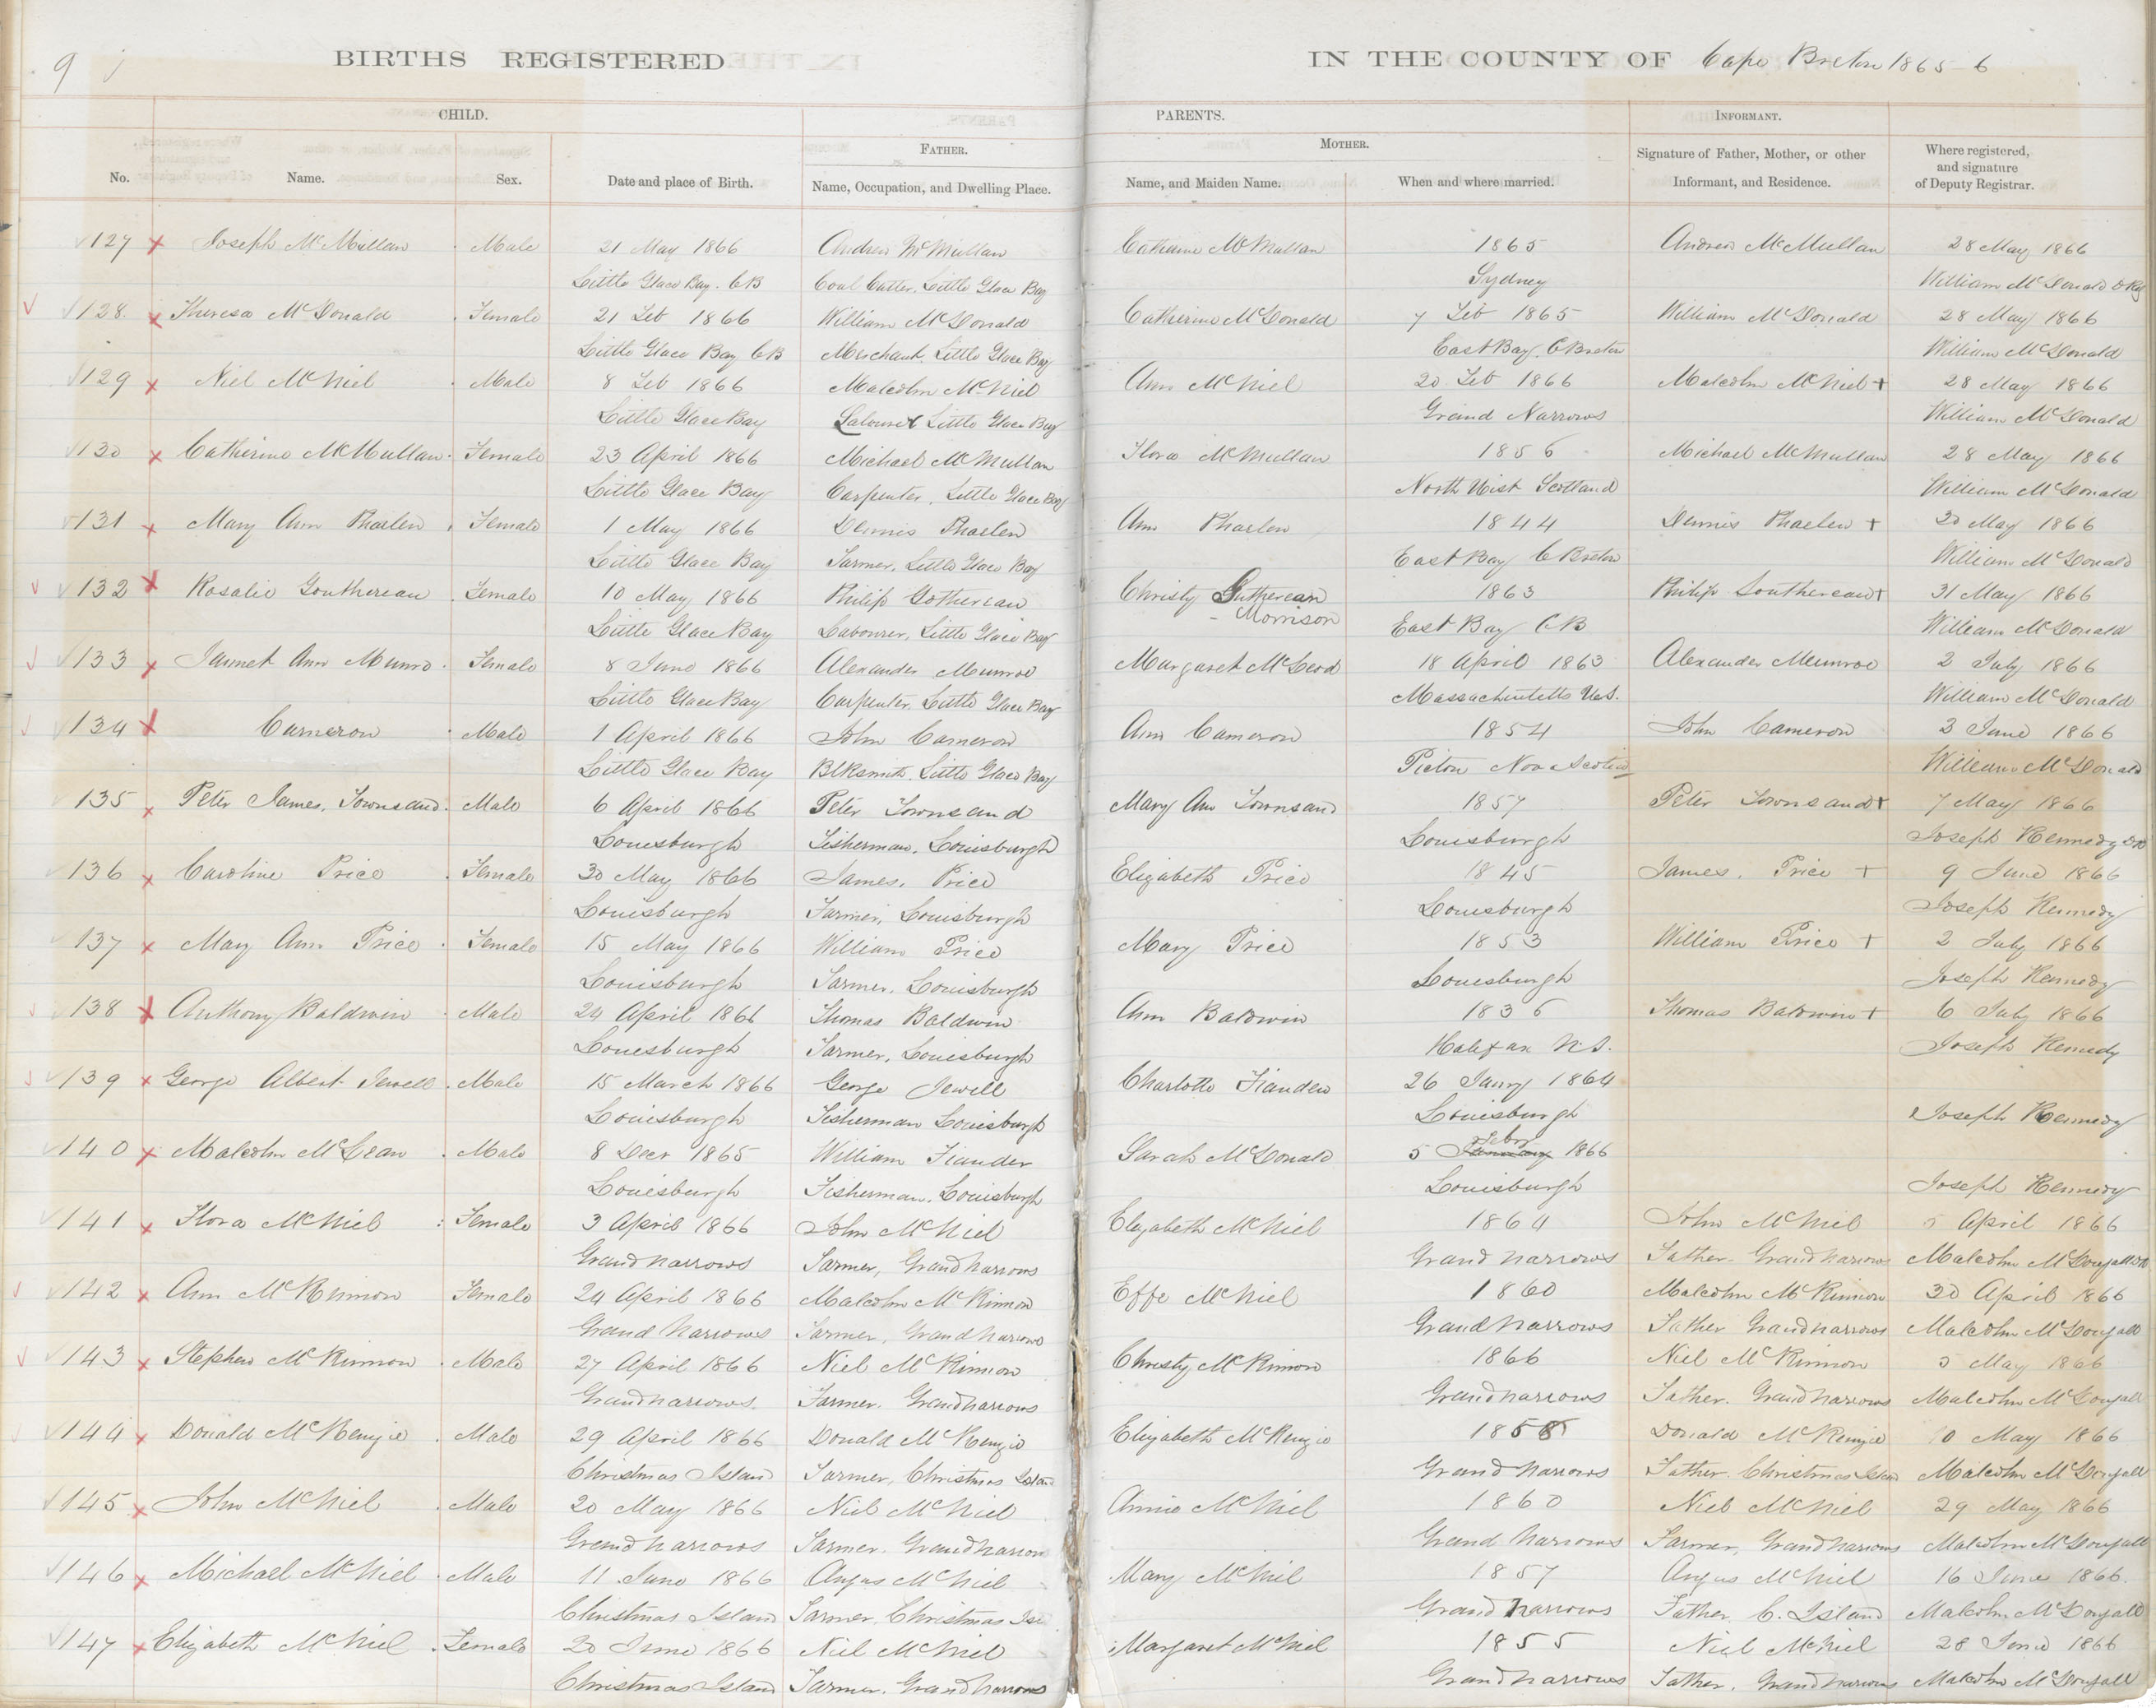 9
BIRTHS REGISTERED IN THE COUNTY OF Cape Breton 1865-6
CHILD. PARENTS. INFORMANT.
FATHER. MOTHER.
No. Name. Sex. Date and place of Birth. Name, Occupation, and Dwelling Place. Name, and Maiden Name. When and where married. Signature of Father, Mother, or other Informant, and Residence. Where registered, and signature of Deputy Registrar.
127 Joseph McMullan Male 21 May 1866 Andrew McMullan Catharine McMullan 1865 Andrew McMullan 28 May 1866
Little Glace Bay. CB Coal Cutter, Little Glace Bay Sydney William McDonald D Reg
128 Theresa McDonald Female 21 Feb 1866 William McDonald Catherine McDonald 7 Feb 1865 William McDonald 28 May 1866
Little Glace Bay CB Merchant, Little Glace Bay East Bay, C Breton William McDonald
129 Niel McNiel Male 8 Feb 1866 Malcolm McNiel Ann McNiel 20 Feb 1866 Malcolm McNiel + 28 May 1866
Little Glace Bay Labourer Little Glace Bay Grand Narrows William McDonald
130 Catherine McMullan Female 23 April 1866 Michael McMullan Flora McMullan 1856 Michael McMullan 28 May 1866
Little Glace Bay Carpenter, Little Glace Bay North Uist Scotland William McDonald
131 Mary Ann Phaelen Female 1 May 1866 Dennis Phaelen Ann Phaelen 1844 Dennis Phaelen + 20 May 1866
Little Glace Bay Farmer, Little Glace Bay East Bay C Breton William McDonald
132 Rosalie Gouthereau Female 10 May 1866 Philip Gothereau Christy Guthereau 1863 Philip Gouthereau + 31 May 1866
Little Glace Bay Labourer, Little Glace Bay - Morrison East Bay CB William McDonald
133 Jannet Ann Munro Female 8 June 1866 Alexander Munroe Margaret McLeod 18 April 1863 Alexander Munroe 2 July 1866
Little Glace Bay Carpenter, Little Glace Bay Massachusetts U.S. William McDonald
134 Cameron Male 1 April 1866 John Cameron Ann Cameron 1854 John Cameron 3 June 1866
Little Glace Bay Blksmith, Little Glace Bay Picton Nova Scotia William McDonald
135 Peter James, Townsand Male 6 April 1866 Peter Townsand Mary Ann Townsand 1857 Peter Townsand + 7 May 1866
Louesburgh Fisherman, Louisburgh Louesburgh Joseph Kennedy DR
136 Caroline Price Female 30 May 1866 James, Price Elizabeth Price 1845 James, Price + 9 June 1866
Louisburgh Farmer, Louisburgh Louesburgh Joseph Kennedy
137 Mary Ann Price Female 15 May 1866 William Price Mary Price 1853 William Price + 2 July 1866
Louisburgh Farmer, Louisburgh Louesburgh Joseph Kennedy
138 Anthony Baldwin Male 24 April 1866 Thomas Baldwin Ann Baldwin 1836 Thomas Baldwin + 6 July 1866
Louesburgh Farmer, Louisburgh Halifax N.S. Joseph Kennedy
139 George Albert Jewell Male 15 March 1866 George Jewell Charlotte Fiander 26 Jany 1864
Louisburgh Fisherman Louisburgh Louisburgh Joseph Kennedy
140 Malcolm McLean Male 8 Decr 1865 William Fiander Sarah McDonald 5 January Feby 1866
Louisburgh Fisherman, Louisburgh Louisburgh Joseph Kennedy
141 Flora McNiel Female 3 April 1866 John McNiel Elizabeth McNiel 1864 John McNiel April 1866
Grand narrows Farmer, Grand narrows Grand narrows Father. Grand narrows Malcolm McDougall DR
142 Ann McKinnon Female 24 April 1866 Malcolm McKinnon Effe McNiel 1860 Malcolm McKinnon 30 April 1866
Grand Narrows Farmer, Grand narrows Grand narrows Father Grand narrows Malcolm McDougall
143 Stephen McKinnon Male 27 April 1866 Niel McKinnon Christy McKinnon 1866 Niel McKinnon May 1866
Grand narrows. Farmer. Grand narrows Grand narrows Father. Grand narrows Malcolm McDougall
144 Donald McKenzie Male 29 April 1866 Donald McKenzie Elizabeth McKenzie Donald McKenzie 10 May 1866
Christmas Island Farmer, Christmas Island Grand narrows Father. Christmas Island Malcolm McDougall
145 John McNiel Male 20 May 1866 Niel McNiel Annie McNiel 1860 Niel McNiel 29 May 1866
Grand narrows Farmer. Grand narrows Grand Narrows Farmer, Grand narrows Malcolm McDougall
146 Michael McNiel Male 11 June 1866 Angus McNiel Mary McNiel 1857 Angus McNiel 16 June 1866.
Christmas Island Farmer, Christmas Isl Grand Narrows Father, C. Island Malcolm McDougall
147 Elizabeth McNiel Female 20 June 1866 Niel McNiel Margaret McNiel 1855 Niel McNiel 28 June 1866
Christmas Island Farmer. Grand narrows Grand narrows Father, Grand narrows Malcolm McDougall